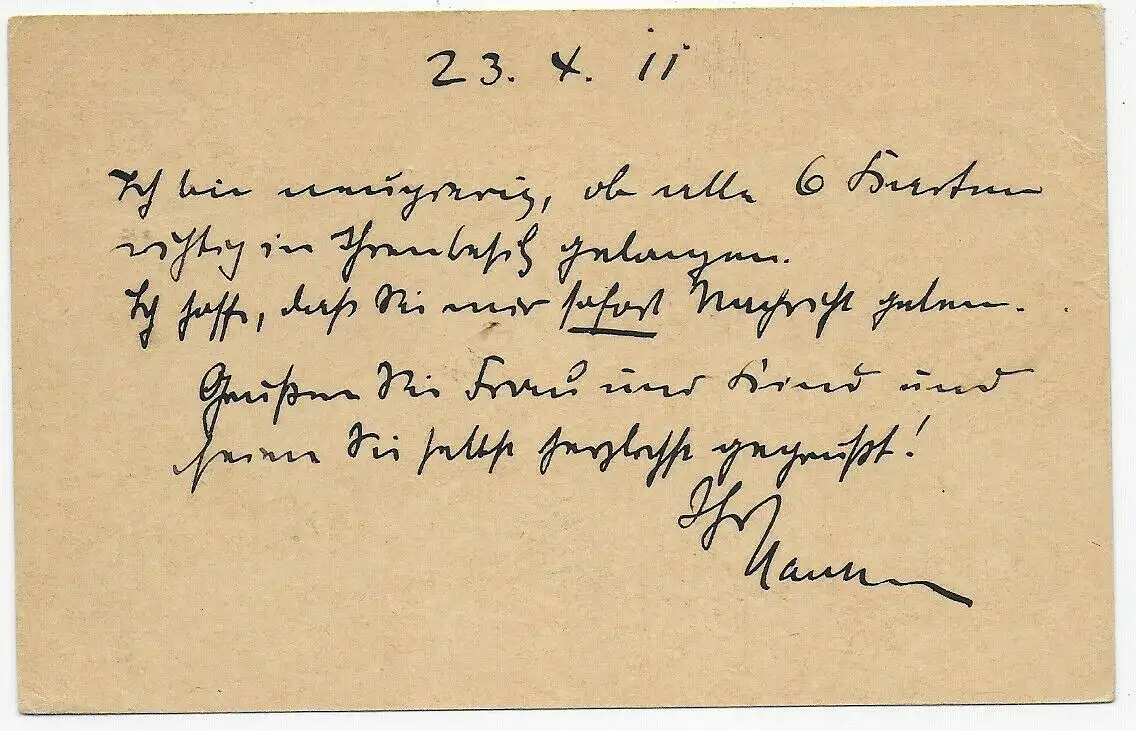 23. 4. 11
Ich bin neugierig, ob alle 6 Karten
richtig in Ihren Besitz gelangen.
Ich hoffe, daß Sie mir sofort Nachricht geben.
Grüßen Sie Frau und Kind und
seien Sie selbst herzlichst gegrüßt!
Ihr